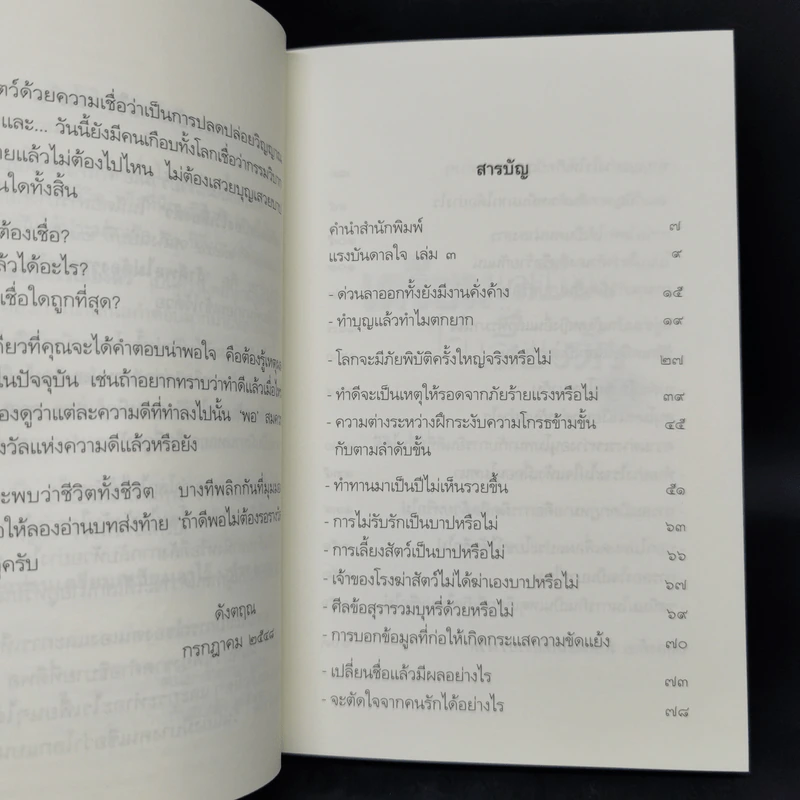 ตว์ด้วยความเชื่อว่าเป็นการปลดปล่อยวิญญาณ
และ... วันนี้ยังมีคนเกือบทั้งโลกเชื่อว่ากรรมวิบาก
ยแล้วไม่ต้องไปไหน ไม่ต้องเสวยบุญเสวยบาป
นใดทั้งสิ้น
ต้องเชื่อ?
ล้วได้อะไร?
เชื่อใดถูกที่สุด?
ดียวที่คุณจะได้คำตอบน่าพอใจ คือต้องรู้เหตุผล
ในปัจจุบัน เช่นถ้าอยากทราบว่าทำดีแล้วเมื่อไหร่
องดูว่าแต่ละความดีที่ทำลงไปนั้น 'พอ' สมควร
งวัลแห่งความดีแล้วหรือยัง
ะพบว่าชีวิตทั้งชีวิต บางทีพลิกกันที่มุมมอง
อให้ลองอ่านบทส่งท้าย 'ถ้าดีพอไม่ต้องรอรางวัล
ครับ
ดังตฤณ
กรกฎาคม ๒๕๔๘
สารบัญ
คำนำสำนักพิมพ์ ๗
แรงบันดาลใจ เล่ม ๓ ๙
- ด่วนลาออกทั้งยังมีงานคั่งค้าง ๑๕
- ทำบุญแล้วทำไมตกยาก ๑๙
- โลกจะมีภัยพิบัติครั้งใหญ่จริงหรือไม่ ๒๗
- ทำดีจะเป็นเหตุให้รอดจากภัยร้ายแรงหรือไม่ ๓๙
- ความต่างระหว่างฝึกระงับความโกรธข้ามขั้น ๔๕
กับตามลำดับขั้น
- ทำทานมาเป็นปีไม่เห็นรวยขึ้น ๕๑
- การไม่รับรักเป็นบาปหรือไม่ ๖๓
- การเลี้ยงสัตว์เป็นบาปหรือไม่ ๖๖
- เจ้าของโรงฆ่าสัตว์ไม่ได้ฆ่าเองบาปหรือไม่ ๖๗
- ศีลข้อสุรารวมบุหรี่ด้วยหรือไม่ ๖๙
- การบอกข้อมูลที่ก่อให้เกิดกระแสความขัดแย้ง ๗๐
- เปลี่ยนชื่อแล้วมีผลอย่างไร ๗๓
- จะตัดใจจากคนรักได้อย่างไร ๗๘